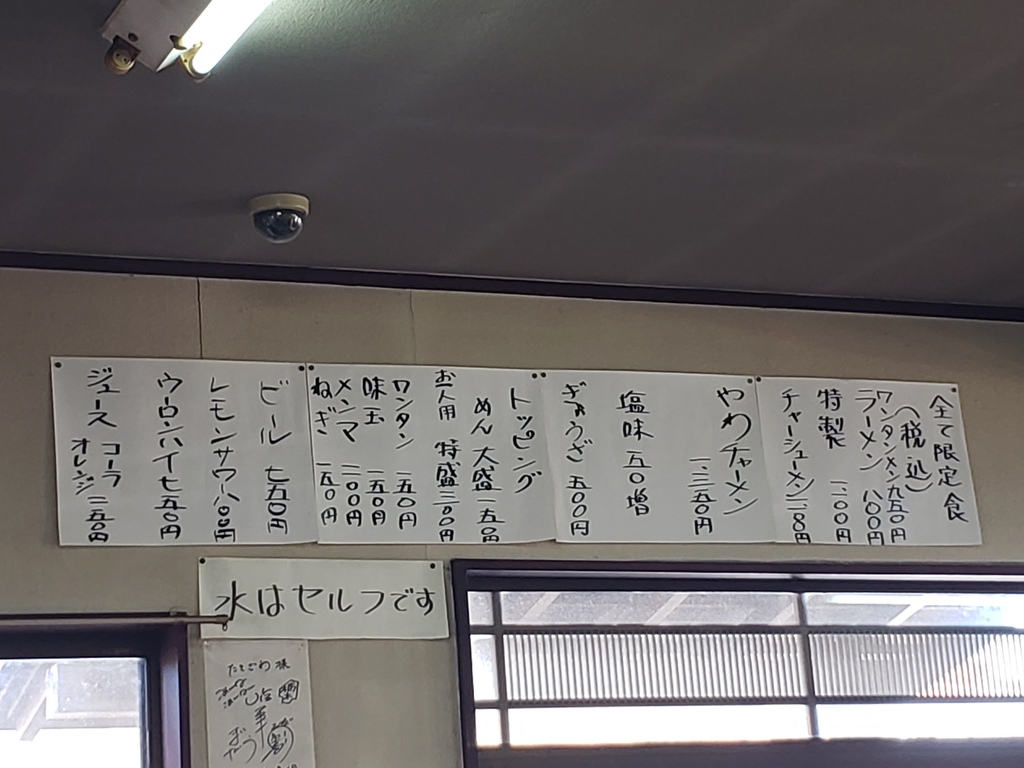 全て限定食
(税込)
ワンタンメン 九五〇円
ラーメン 八〇〇円
特製 一二〇〇円
チャーシューメン
やわチャーメン
一三五〇円
塩味 五〇増
ぎょうざ 五〇〇円
トッピング
めん大盛 一五〇円
お一人用 特盛 三〇〇円
ワンタン 一五〇円
味玉 一五〇円
メンマ 二〇〇円
ねぎ 一五〇円
ビール 七五〇円
レモンサワー 八〇〇円
ウーロンハイ 七五〇円
ジュース コーラ
オレンジ 二五〇円
水はセルフです